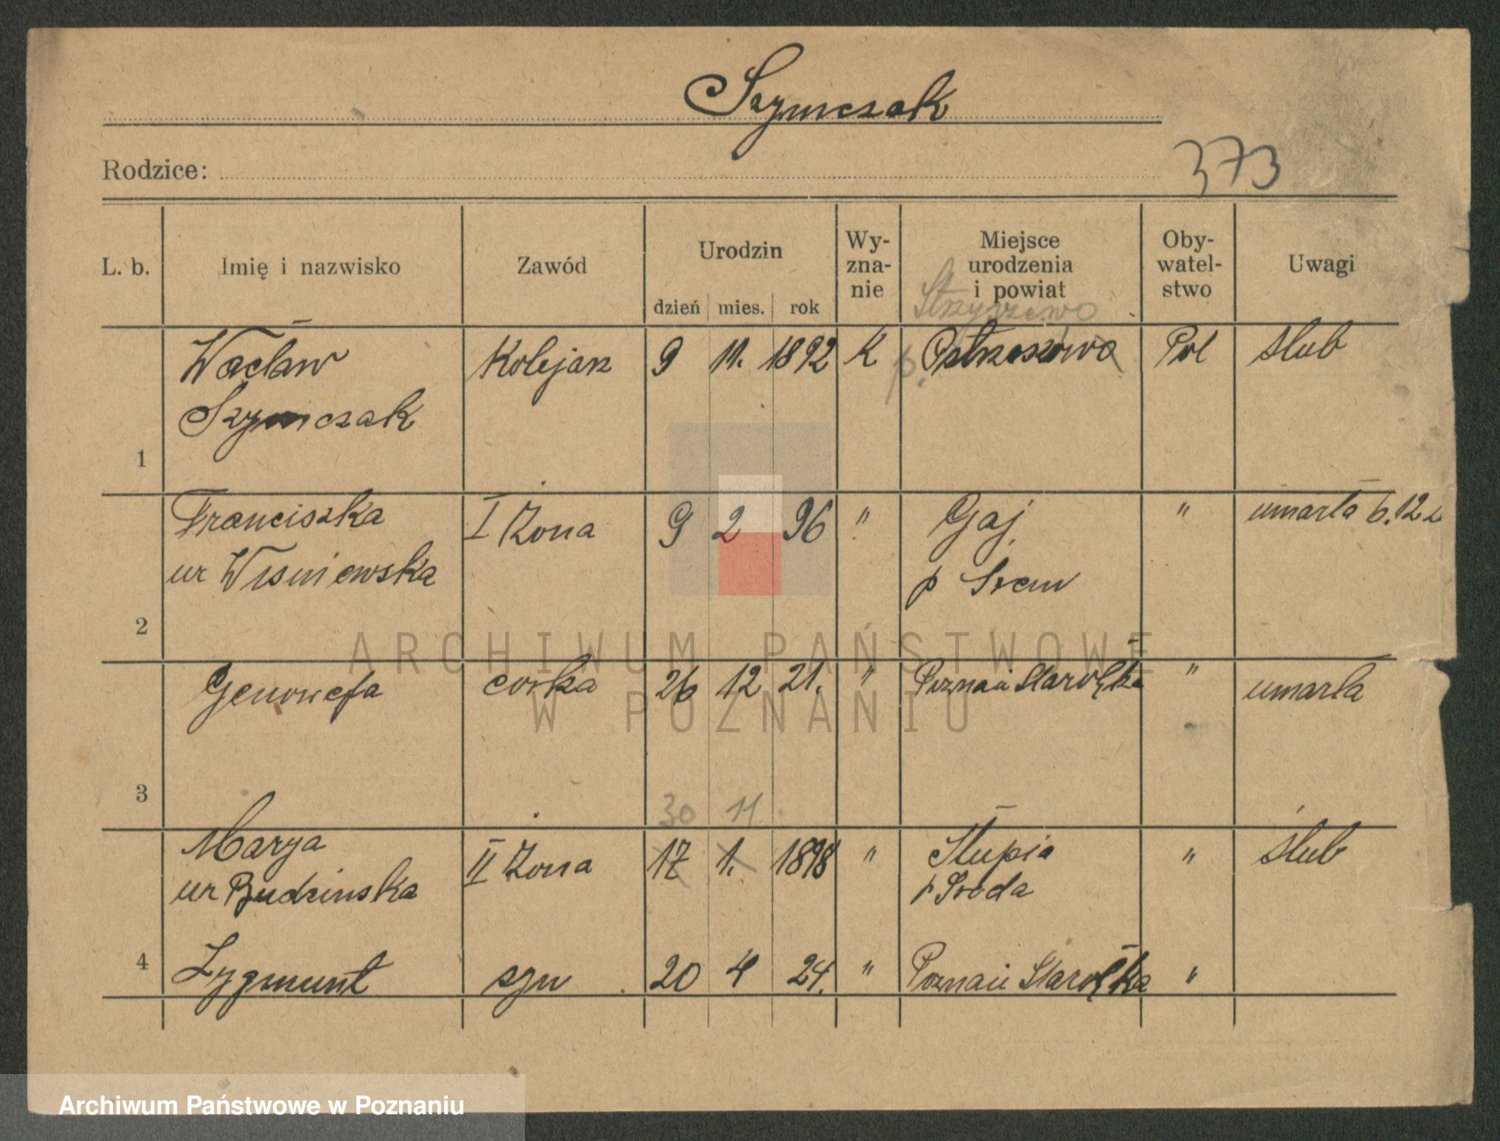 Szymczak
Rodzice:
373
L. b. Imię i nazwisko Zawód Urodzin dzień mies. rok Wy-zna-nie Miejsce urodzenia i powiat Oby-watel-stwo Uwagi
Strzyżewo
1 Wacław Kolejarz 9 11. 1892 K p. Ostrzeszowo Pol Ślub
Szymczak
2 Franciszka I Żona 9 2 96 " Gaj " umarła 6.12
ur Wiśniewska p Srem
3 Genowefa córka 26 12 21. " Poznań Starołęka " umarła
30 11
4 Marya II Żona 17 1. 1898 " Słupia " Ślub
ur Budzinska p Sroda
Zygmunt syn 20 4 24. " Poznań Starołęka "
ARCHIWUM PAŃSTWOWE
W POZNANIU
Archiwum Państwowe w Poznaniu